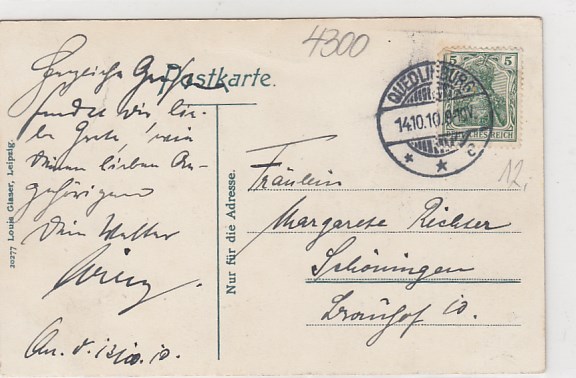 4300
Postkarte.
Herzliche Grüße
sendet dir lie-
be Grete, wie
deinen lieben An-
gehörigen
Dein Walter
20277 Louis Glaser, Leipzig.
Nur für die Adresse.
QUEDLINBURG
14.10.10. 9-10V.
* * c
5 5
DEUTSCHES REICH
12.
Fräulein
Margarete Richter
Schöningen
Brauhof 10.